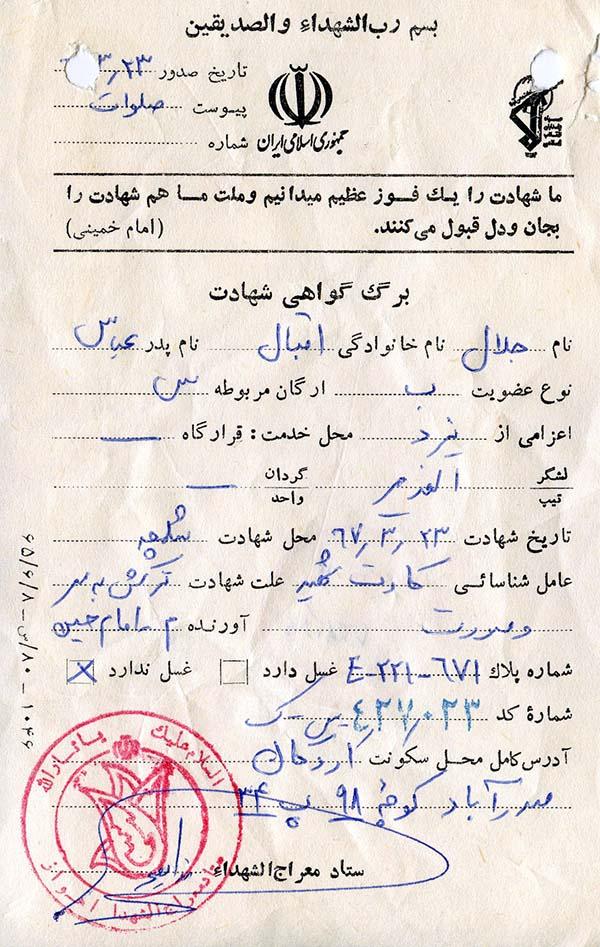 بسم رب الشهداء والصدیقین
تاریخ صدور ۳٫۲۳
پیوست صلوات
شماره
جمهوری اسلامی ایران
ما شهادت را یك فوز عظیم میدانیم وملت مـا هم شهادت را
بجان ودل قبول می‌کنند. (امام خمینی)
برگ گواهی شهادت
نام جلال نام خانوادگی اقبال نام پدر عباس
نوع عضویت ب ارگان مربوطه س
اعزامی از محل خدمت: قرارگاه —
لشگر تیپ گردان واحد —
تاریخ شهادت ۶۷٫۳٫۲۳ محل شهادت شلمچه
عامل شناسائی کارت شهید علت شهادت ترکش به سر
وصورت آورنده م امام حسین
شماره پلاك E-۲۲۱-۶۷۱ غسل دارد غسل ندارد X
شمارهٔ کد
آدرس کامل محل سکونت
کوچه ۹۸ پ ۳۴
ستاد معراج الشهداء
السلام علیك یا ثارالله
ستاد معراج الشهدا اهواز
۱۰۴۶ – ۸۰/س – ۶۵/۶/۸